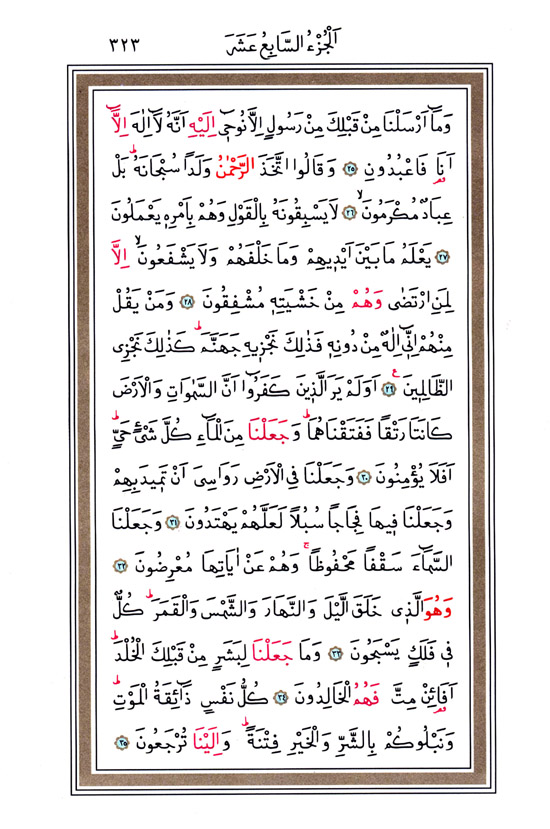 اَلْجُزْءُ السَّابِعُ عَشَرَ ٣٢٣
وَمَٓا اَرْسَلْنَا مِنْ قَبْلِكَ مِنْ رَسُولٍ اِلَّا نُوحٖٓي اِلَيْهِ اَنَّهُ لَٓا اِلٰهَ اِلَّٓا
اَنَا۬ فَاعْبُدُونِ ﴿٢٥﴾ وَقَالُوا اتَّخَذَ الرَّحْمٰنُ وَلَداً سُبْحَانَهُۜ بَلْ
عِبَادٌ مُكْرَمُونَۙ ﴿٢٦﴾ لَا يَسْبِقُونَهُ بِالْقَوْلِ وَهُمْ بِاَمْرِهٖ يَعْمَلُونَ
﴿٢٧﴾ يَعْلَمُ مَا بَيْنَ اَيْدٖيهِمْ وَمَا خَلْفَهُمْ وَلَا يَشْفَعُونَۙ اِلَّا
لِمَنِ ارْتَضٰى وَهُمْ مِنْ خَشْيَتِهٖ مُشْفِقُونَ ﴿٢٨﴾ وَمَنْ يَقُلْ
مِنْهُمْ اِنّٖٓي اِلٰهٌ مِنْ دُونِهٖ فَذٰلِكَ نَجْزٖيهِ جَهَنَّمَۜ كَذٰلِكَ نَجْزِي
الظَّالِمٖينَ۟ ﴿٢٩﴾ اَوَلَمْ يَرَ الَّذٖينَ كَفَرُٓوا اَنَّ السَّمٰوَاتِ وَالْاَرْضَ
كَانَتَا رَتْقاً فَفَتَقْنَاهُمَاۜ وَجَعَلْنَا مِنَ الْمَٓاءِ كُلَّ شَيْءٍ حَيٍّۜ
اَفَلَا يُؤْمِنُونَ ﴿٣٠﴾ وَجَعَلْنَا فِي الْاَرْضِ رَوَاسِيَ اَنْ تَمٖيدَ بِهِمْ
وَجَعَلْنَا فٖيهَا فِجَاجاً سُبُلاً لَعَلَّهُمْ يَهْتَدُونَ ﴿٣١﴾ وَجَعَلْنَا
السَّمَٓاءَ سَقْفاً مَحْفُوظاًۚ وَهُمْ عَنْ اٰيَاتِهَا مُعْرِضُونَ ﴿٣٢﴾
وَهُوَ الَّذٖي خَلَقَ الَّيْلَ وَالنَّهَارَ وَالشَّمْسَ وَالْقَمَرَۜ كُلٌّ
فٖي فَلَكٍ يَسْبَحُونَ ﴿٣٣﴾ وَمَا جَعَلْنَا لِبَشَرٍ مِنْ قَبْلِكَ الْخُلْدَۜ
اَفَا۬ئِنْ مِتَّ فَهُمُ الْخَالِدُونَ ﴿٣٤﴾ كُلُّ نَفْسٍ ذَٓائِقَةُ الْمَوْتِۜ
وَنَبْلُوكُمْ بِالشَّرِّ وَالْخَيْرِ فِتْنَةًۜ وَاِلَيْنَا تُرْجَعُونَ ﴿٣٥﴾